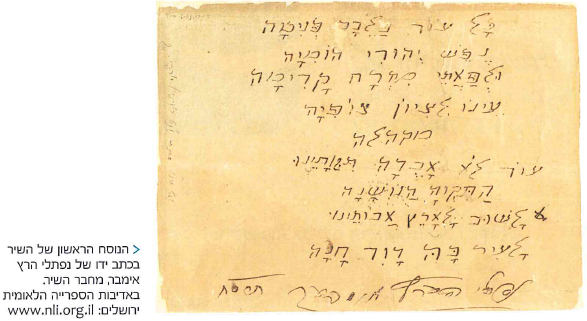 כָּל עוֹד בַּלֵבָב פְּנִימָה
נֶפֶשׁ יְהוּדִי הוֹמִיָה
וּלְפַאֲתֵי מִזְרָח קָדִימָה
עֵינוֹ לְצִיוֹן צוֹפִיָה
מקהלה
עוֹד לֹא אָבְדָה תִּקְוָתֵינוּ
הַתִּקְוָה הַנוֹשָׁנָה
לָשׁוּב לְאֶרֶץ אֲבוֹתֵינוּ
לָעִיר בָּהּ דָוִד חָנָה
נפתלי הערץ אימבער
הנוסח הראשון של השיר
בכתב ידו של נפתלי הרץ
אימבר, מחבר השיר.
באדיבות הספרייה הלאומית
ירושלים: www.nli.org.il